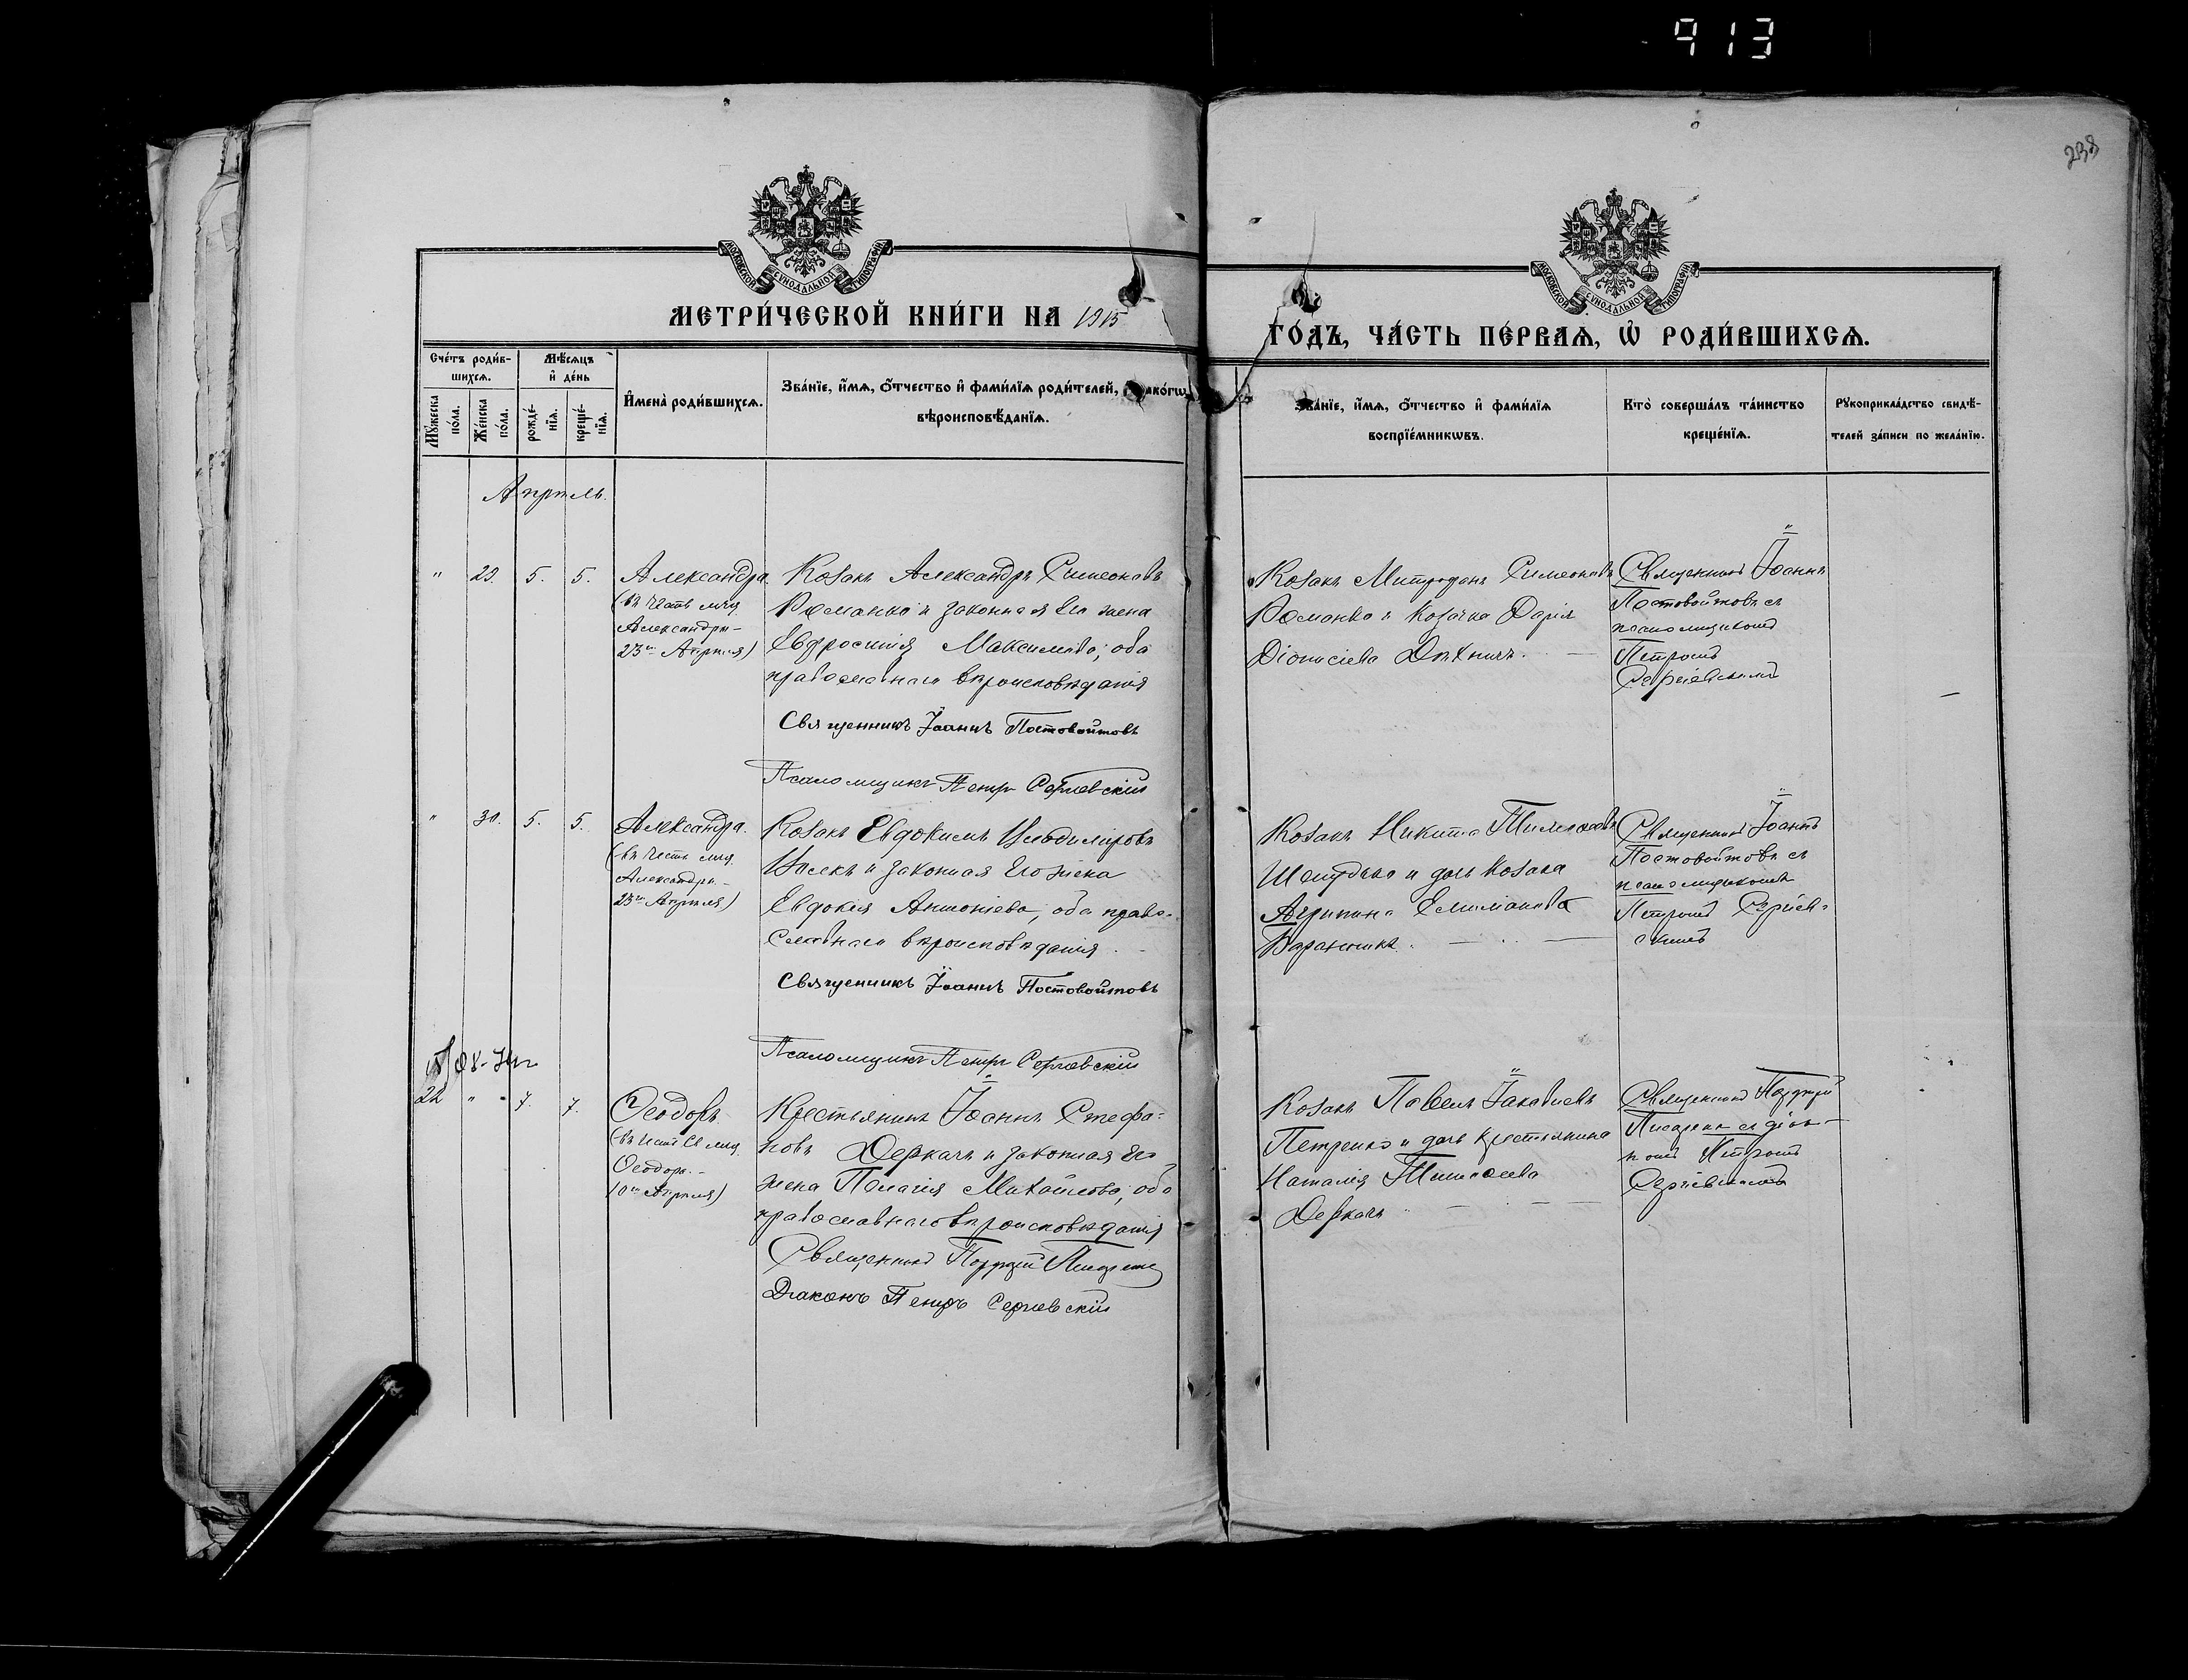 913
238
МОСКОВСКОЙ СѴНОДАЛЬНОЙ ТИПОГРАФІИ
МОСКОВСКОЙ СѴНОДАЛЬНОЙ ТИПОГРАФІИ
МЕТРИ́ЧЕСКОЙ КНИ́ГИ НА 1915
ГО́ДЪ, ЧА́СТЬ ПЕ́РВАѦ, Ѡ҆ РОДИ́ВШИХСѦ.
Сче́тъ роди́в-
шихсѧ.
Мѣ́сѧцъ
и҆ де́нь
Мꙋ́жеска
по́ла.
Же́нска
по́ла.
рожде́-
нїѧ.
креще́-
нїѧ.
И҆мена̀ роди́вшихсѧ.
Зва́нїе, и҆́мѧ, ѻ҆́тчество и҆ фами́лїѧ роди́телей, како́гѡ
вѣроисповѣ́данїѧ.
Зва́нїе, и҆́мѧ, ѻ҆́тчество и҆ фами́лїѧ
воспрїе́мникѡвъ.
Кто̀ соверша́лъ та́инство
креще́нїѧ.
Рꙋкоприкла́дство свидѣ́-
телей за́писи по жела́нїю.
Апрѣль.
" 29. 5. 5.
Александра
(въ честь мчц.
Александры -
23го Апрѣля)
Козакъ Александръ Симеоновъ
Романко и законная его жена
Евфросинія Максимова, оба
православнаго вѣроисповѣданія
Священникъ Іоаннъ Постовойтовъ
Псаломщикъ Петръ Сергіевскій
Козакъ Митрофанъ Симеоновъ
Романко и козачка Дарія
Діонисіева
Священникъ Іоаннъ
Постовойтовъ съ
псаломщикомъ
Петромъ
Сергіевскимъ
" 30. 5. 5.
Александра.
(въ честь мчц.
Александры. -
23го Апрѣля)
Козакъ Евдокимъ Владиміровъ
Носекъ и законная его жена
Евдокія Антоніева, оба право-
славнаго вѣроисповѣданія
Священникъ Іоаннъ Постовойтовъ
Псаломщикъ Петръ Сергіевскій
Козакъ Никита
и дочь козака
Агрипина Емиліанова
Священникъ Іоаннъ
Постовойтовъ съ
псаломщикомъ
Петромъ Сергіев-
скимъ
22 " 7. 7.
Ѳеодоръ
(въ честь Св мчц.
Ѳеодора. -
10го Апрѣля)
Крестьянинъ Іоаннъ Стефа-
новъ Деркачъ и законная его
жена Пелагія Михайлова, оба
православнаго вѣроисповѣданія
Священникъ Порфирій Писаренко
Діаконъ Петръ Сергіевскій
Козакъ Павелъ Іаковлевъ
Петренко и дочь крестьянина
Наталія Тимоѳеева
Деркачъ
Священникъ Порфирій
Писаренко съ діако-
номъ Петромъ
Сергіевскимъ